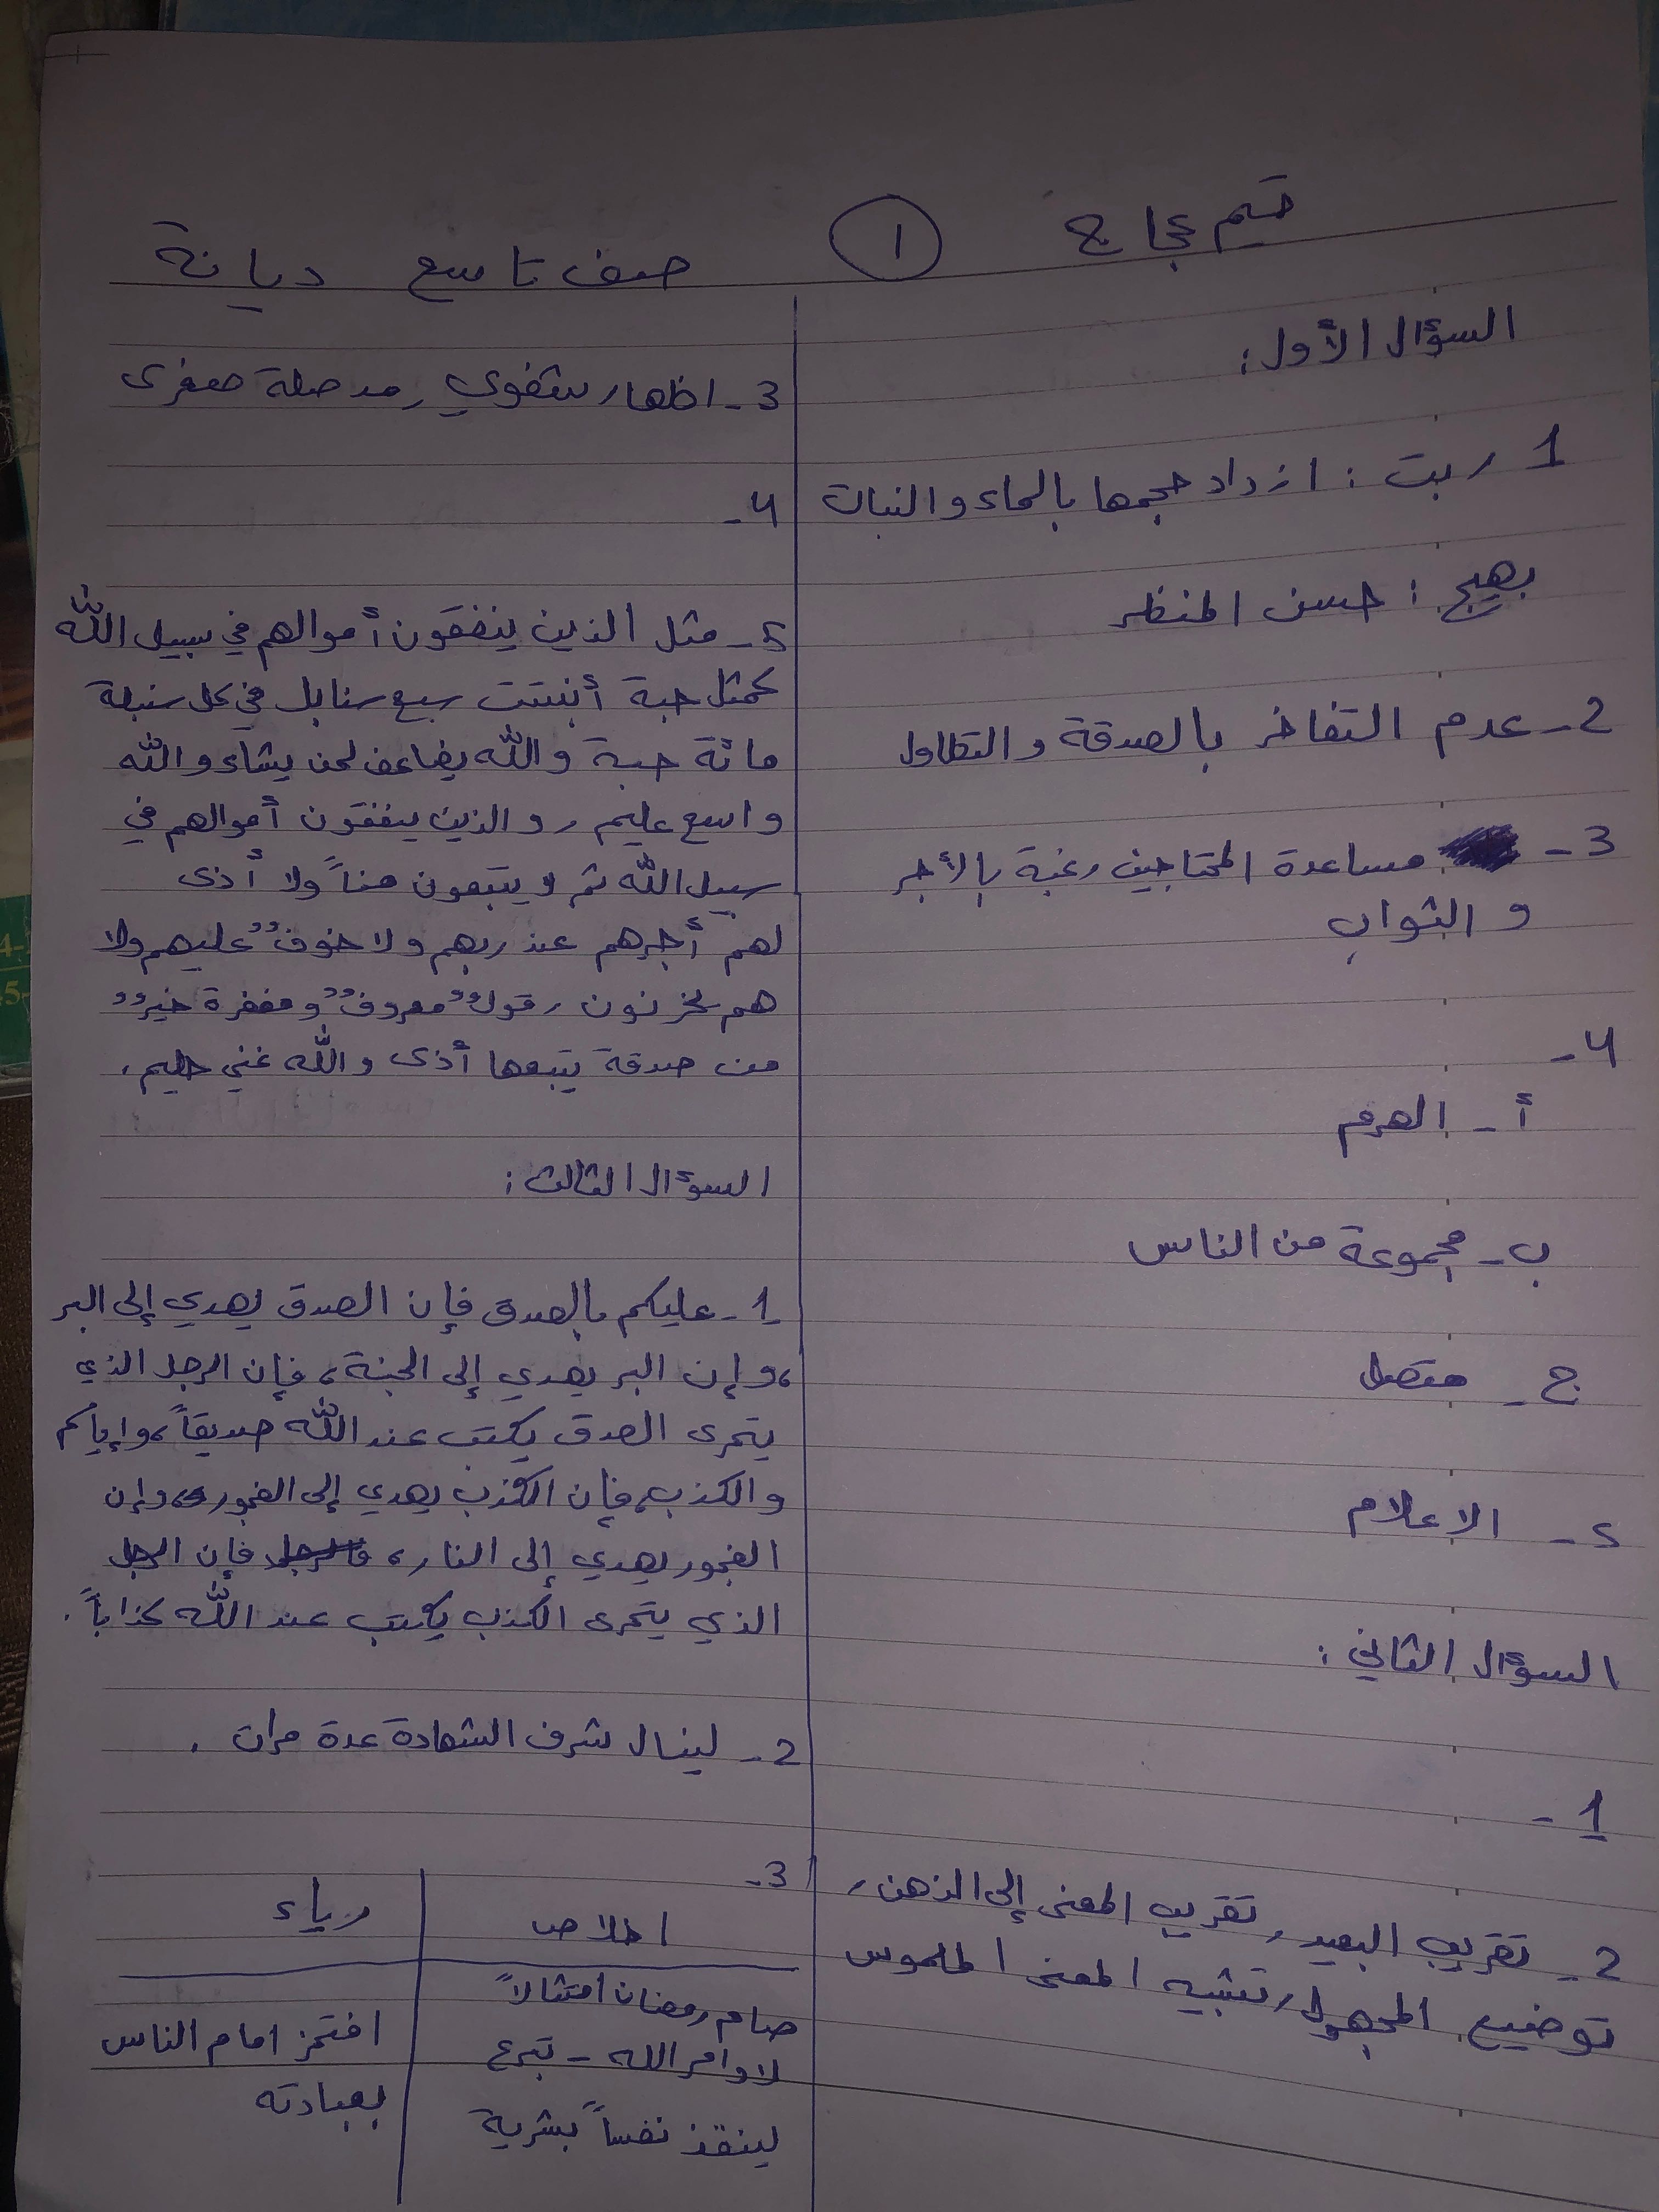 تيم عجاج
1
صف تاسع ديانة
السؤال الأول:
1 ربت : ازداد حجمها بالماء والنبات
بهيج : حسن المنظر
2- عدم التفاخر بالصدقة والتطاول
3- مساعدة المحتاجين رغبة بالأجر
و الثواب
4-
أ- الهرم
ب- مجموعة من الناس
ج- متصل
5- الاعلام
السؤال الثاني :
1-
2- تقريب البعيد, تقريب المعنى إلى الذهن,
توضيح المجهول, تشبيه المعنى الملموس
3- اظهار شفوي, مد صلة صغرى
4-
5- مثل الذين ينفقون أموالهم في سبيل الله
كمثل حبة أنبتت سبع سنابل في كل سنبلة
مائة حبة والله يضاعف لمن يشاء والله
واسع عليم, والذين ينفقون أموالهم في
سبيل الله ثم لا يتبعون مناً ولا أذى
لهم أجرهم عند ربهم ولا خوفٌ عليهم ولا
هم يحزنون, قولٌ معروفٌ ومغفرة خيرٌ
من صدقة يتبعها أذى والله غني حليم.
السؤال الثالث :
1- عليكم بالصدق فإن الصدق يهدي إلى البر
،وإن البر يهدي إلى الجنة، فإن الرجل الذي
يتحرى الصدق يكتب عند الله صديقاً، وإياكم
والكذب، فإن الكذب يهدي إلى الفجور، وإن
الفجور يهدي إلى النار، فالرجل فإن الرجل
الذي يتحرى الكذب يكتب عند الله كذاباً.
2- لينال شرف الشهادة عدة مرات .
3-
اخلاص
رياء
صام رمضان امتثالاً
لاوامر الله - تبرع
لينقذ نفساً بشرية
افتخر امام الناس
بعبادته